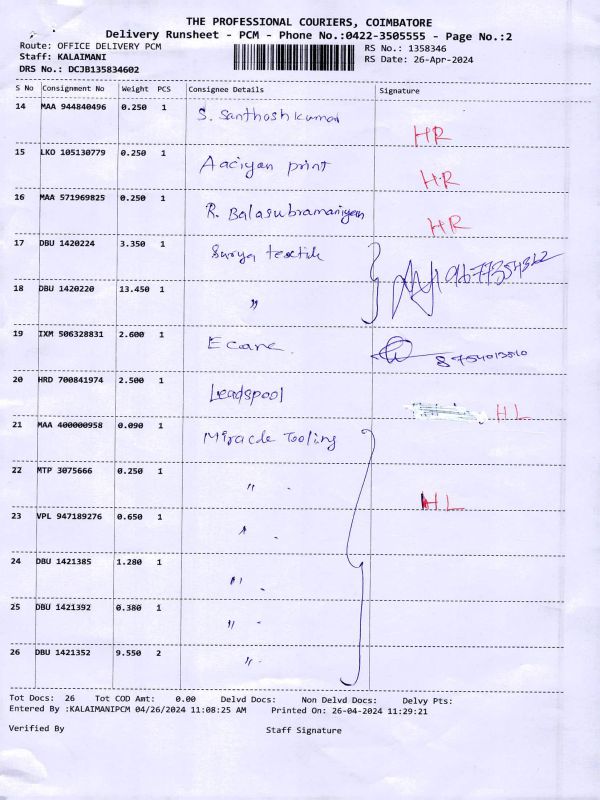 THE PROFESSIONAL COURIERS, COIMBATORE
Delivery Runsheet - PCM - Phone No.:0422-3505555 - Page No.:2
Route: OFFICE DELIVERY PCM
Staff: KALAIMANI
DRS No.: DCJB135834602
RS No.: 1358346
RS Date: 26-Apr-2024
S No Consignment No Weight PCS Consignee Details Signature
14 MAA 944840496 0.250 1 S. Santhosh kumar HR
15 LKO 105130779 0.250 1 Aaciyan print HR
16 MAA 571969825 0.250 1 R. Balasubramaniyan HR
17 DBU 1420224 3.350 1 Surya textile
18 DBU 1420220 13.450 1 "
19 IXM 506328831 2.600 1 Ecare
20 HRD 700841974 2.500 1 Leadspool HL
21 MAA 400000958 0.090 1 Miracle Tooling
22 MTP 3075666 0.250 1 " HL
23 VPL 947189276 0.650 1 "
24 DBU 1421385 1.280 1 "
25 DBU 1421392 0.380 1 "
26 DBU 1421352 9.550 2 "
Tot Docs: 26 Tot COD Amt: 0.00 Delvd Docs: Non Delvd Docs: Delvy Pts:
Entered By :KALAIMANIPCM 04/26/2024 11:08:25 AM Printed On: 26-04-2024 11:29:21
Verified By Staff Signature